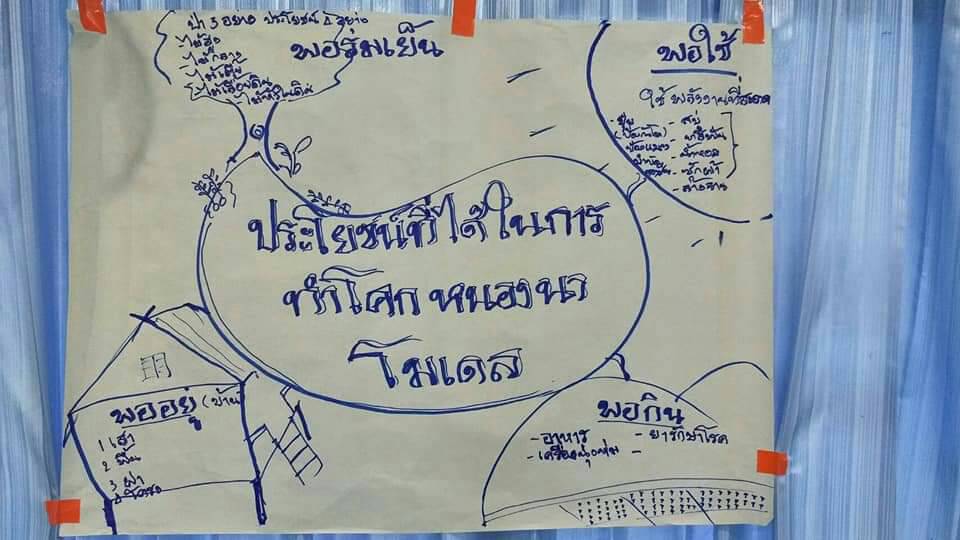 ป่า 3 อย่าง ประโยชน์ 4 อย่าง
- ไม้สูง
- ไม้กลาง
- ไม้เตี้ย
- ไม้เรี่ยดิน
- ไม้หัวใต้ดิน
พอร่มเย็น
พอใช้
ใช้พลังงานที่สะอาด
- ปุ๋ย
- สบู่
- ยาสีฟัน
- ซักผ้า
- ล้างจาน
ประโยชน์ที่ได้ในการ
ทำโคก หนองนา
โมเดล
พออยู่ (บ้าน)
1 เสา
2 พื้น
3 ฝา
พอกิน
- อาหาร - ยารักษาโรค
- เครื่องนุ่งห่ม -